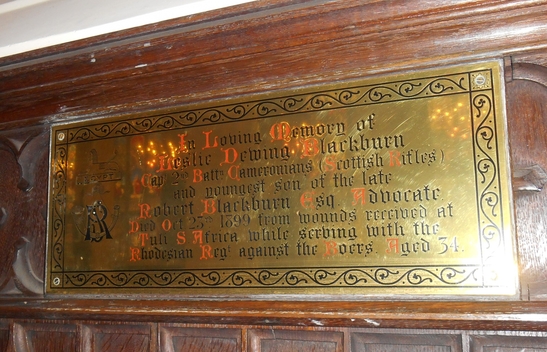 In Loving Memory of
Leslie Dewing Blackburn
Capt 2nd Battn Cameronians (Scottish Rifles)
and youngest son of the late
Robert Blackburn Esq. Advocate
Died Oct 23rd 1899 from wounds received at
Tuli S Africa while serving with the
Rhodesian Regt against the Boers. Aged 34.